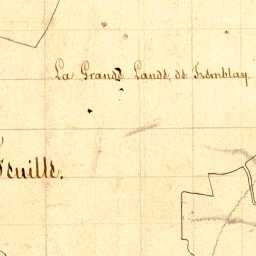 La Grande Lande de Tremblay
Feuille.